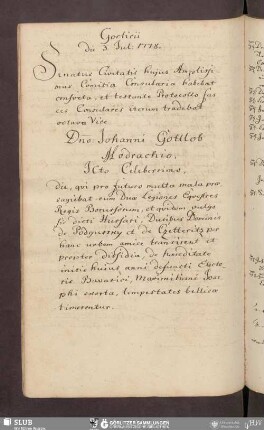 Gorlicii
die 3 Jul. 1778.
Senatus Civitatis hujus Amplissi-
mus Comitia Consularia habebat
consueta, et testante Protocollo fas
ces Consulares iterum tradebat
octava Vice
Dno Johanni Gottlob
Modrachio,
JCto Celeberrimo,
die, qui pro futuro multa mala prae
sagiebat cum Duae Legiones Equestres
Regis Borussorum, et quidem vulgo
sic dicti Hussari, Ducibus Dominis
de Podgursky et de Czetteritz per
hanc urbem amice transirent et
propter dissidia, de hereditate
initio huius anni defuncti Electo-
ris Bavarici, Maximiliani Jose-
phi exorta, tempestates bellicae
timerentur.
SLUB
GÖRLITZER SAMMLUNGEN